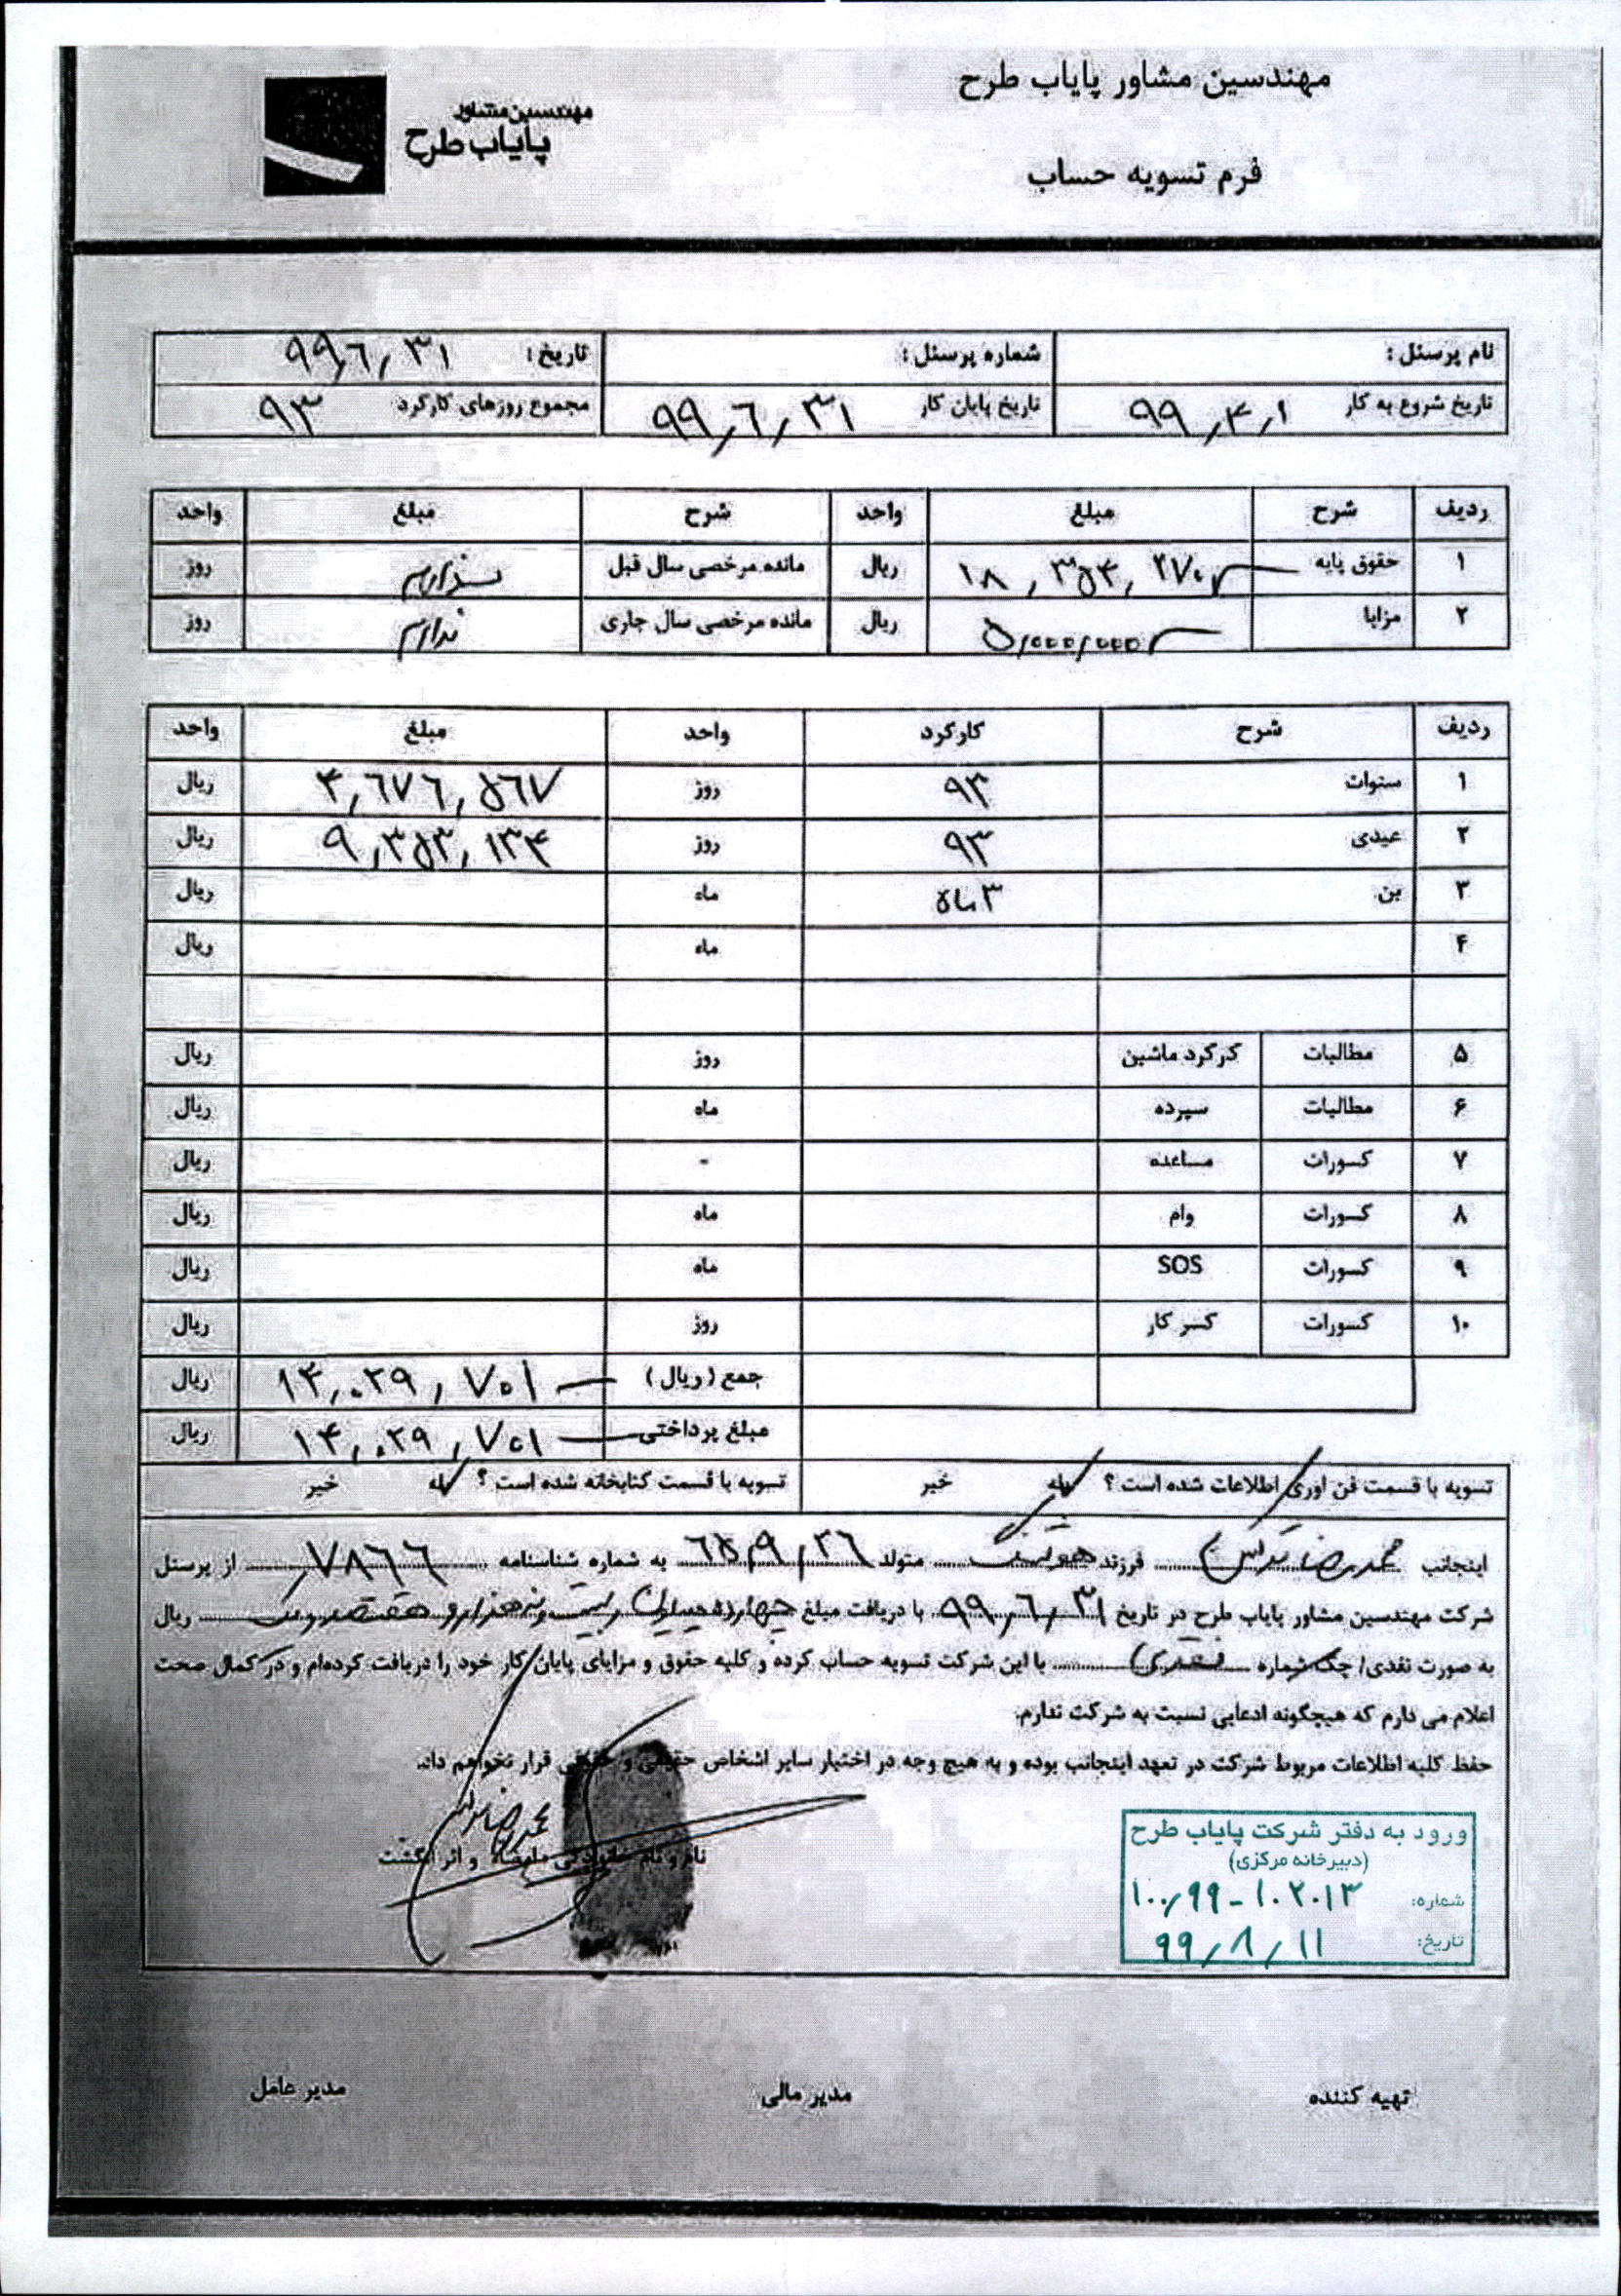 مهندسین مشاور پایاب طرح
مهندسین مشاور
پایاب طرح
فرم تسویه حساب
نام پرسنل : شماره پرسنل : تاریخ : ۹۹,۶,۳۱
تاریخ شروع به کار ۹۹,۴,۱ تاریخ پایان کار ۹۹,۶,۳۱ مجموع روزهای کارکرد ۹۳
ردیف شرح مبلغ واحد شرح مبلغ واحد
۱ حقوق پایه ۱۸,۳۵۴,۲۷۰ ریال مانده مرخصی سال قبل ندارم روز
۲ مزایا ۵,۰۰۰,۰۰۰ ریال مانده مرخصی سال جاری ندارم روز
ردیف شرح کارکرد واحد مبلغ واحد
۱ سنوات ۹۳ روز ۴,۶۷۶,۵۶۷ ریال
۲ عیدی ۹۳ روز ۹,۳۵۳,۱۳۴ ریال
۳ بن ۳ ماه ماه ریال
۴ ماه ریال
۵ مطالبات کرکرد ماشین روز ریال
۶ مطالبات سپرده ماه ریال
۷ کسورات مساعده - ریال
۸ کسورات وام ماه ریال
۹ کسورات SOS ماه ریال
۱۰ کسورات کسر کار روز ریال
جمع (ریال) ۱۴,۰۲۹,۷۰۱ ریال
مبلغ پرداختی ۱۴,۰۲۹,۷۰۱ ریال
تسویه با قسمت فن اوری اطلاعات شده است ؟ بله خیر تسویه با قسمت کتابخانه شده است ؟ بله خیر
اینجانب محمدرضا فرزند متولد ۶۵,۹,۲۶ به شماره شناسنامه ۷۸۶۶ از پرسنل
شرکت مهندسین مشاور پایاب طرح در تاریخ ۹۹,۶,۳۱ با دریافت مبلغ چهارده میلیون و بیست و نه هزار و هفتصد و یک ریال
به صورت نقدی/ چک شماره نقدی با این شرکت تسویه حساب کرده و کلیه حقوق و مزایای پایان کار خود را دریافت کرده‌ام و در کمال صحت
اعلام می دارم که هیچگونه ادعایی نسبت به شرکت ندارم.
حفظ کلیه اطلاعات مربوط شرکت در تعهد اینجانب بوده و به هیچ وجه در اختیار سایر اشخاص حقیقی و حقوقی قرار نخواهم داد.
محمدرضا
نام و نام خانوادگی ، امضاء و اثر انگشت
ورود به دفتر شرکت پایاب طرح
(دبیرخانه مرکزی)
شماره: ۱۰۰,۹۹-۱۰۲۰۱۳
تاریخ: ۹۹,۸,۱۱
تهیه کننده مدیر مالی مدیر عامل